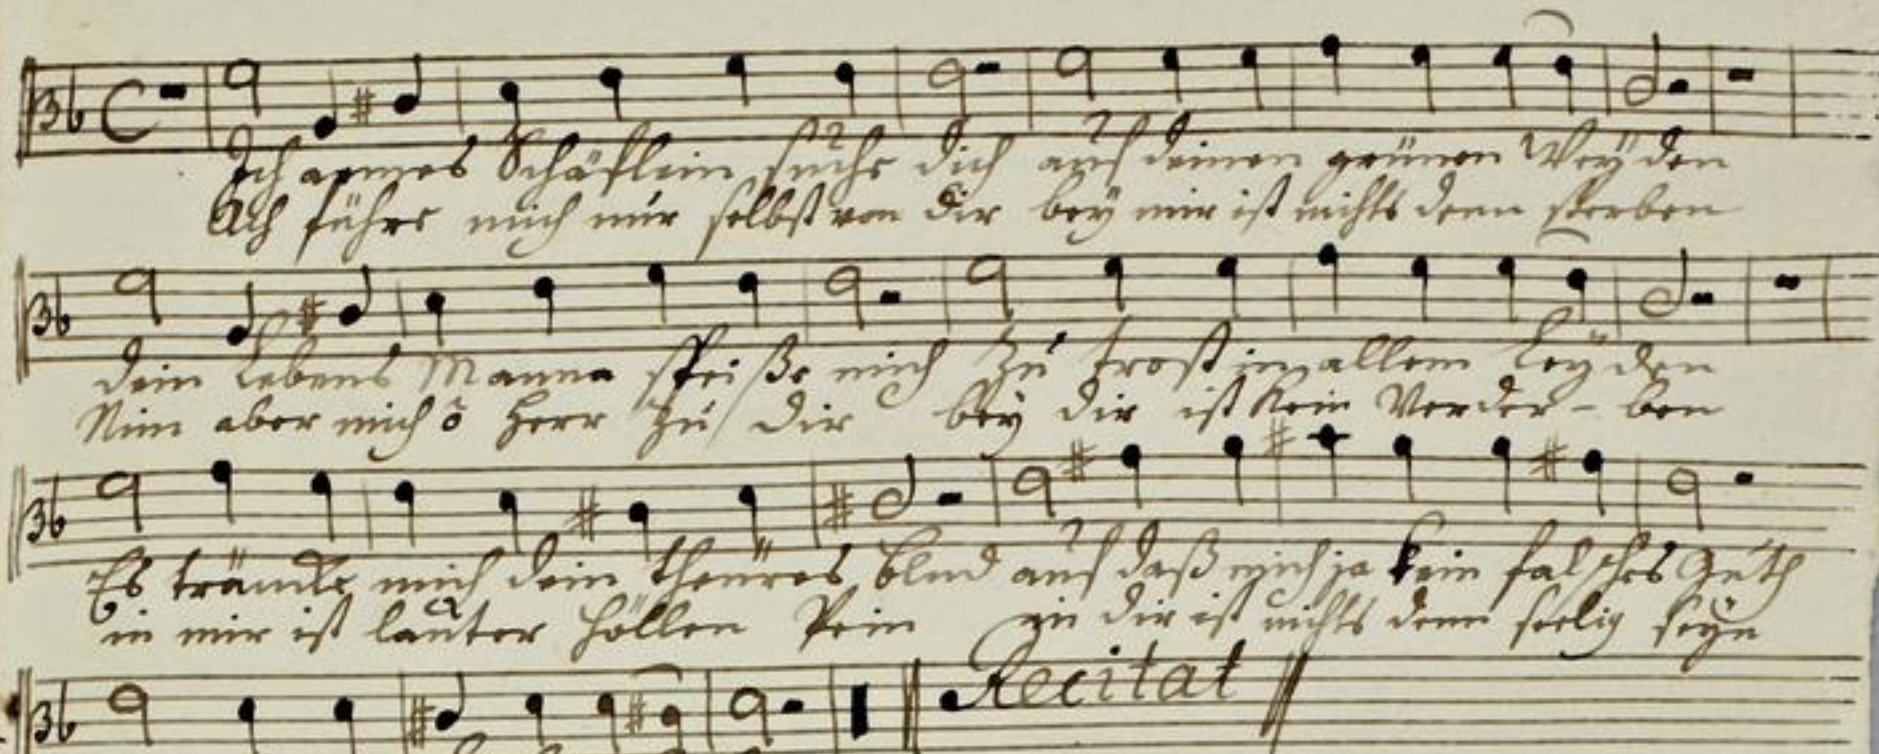 Ich armes Schäflein suche dich auf deinen grünen Weyden
Ach führe mich nur selbst von dir bey mir ist nichts denn sterben
dein Lebens Manna speiße mich zu trost in allem Leyden
Nim aber mich ô Herr zu dir bey dir ist kein Verder-ben
Es träncke mich dein theures Blud auf daß mich ja kein falsches Guth
in mir ist lauter Höllen Pein in dir ist nichts denn seelig seyn
Recitat